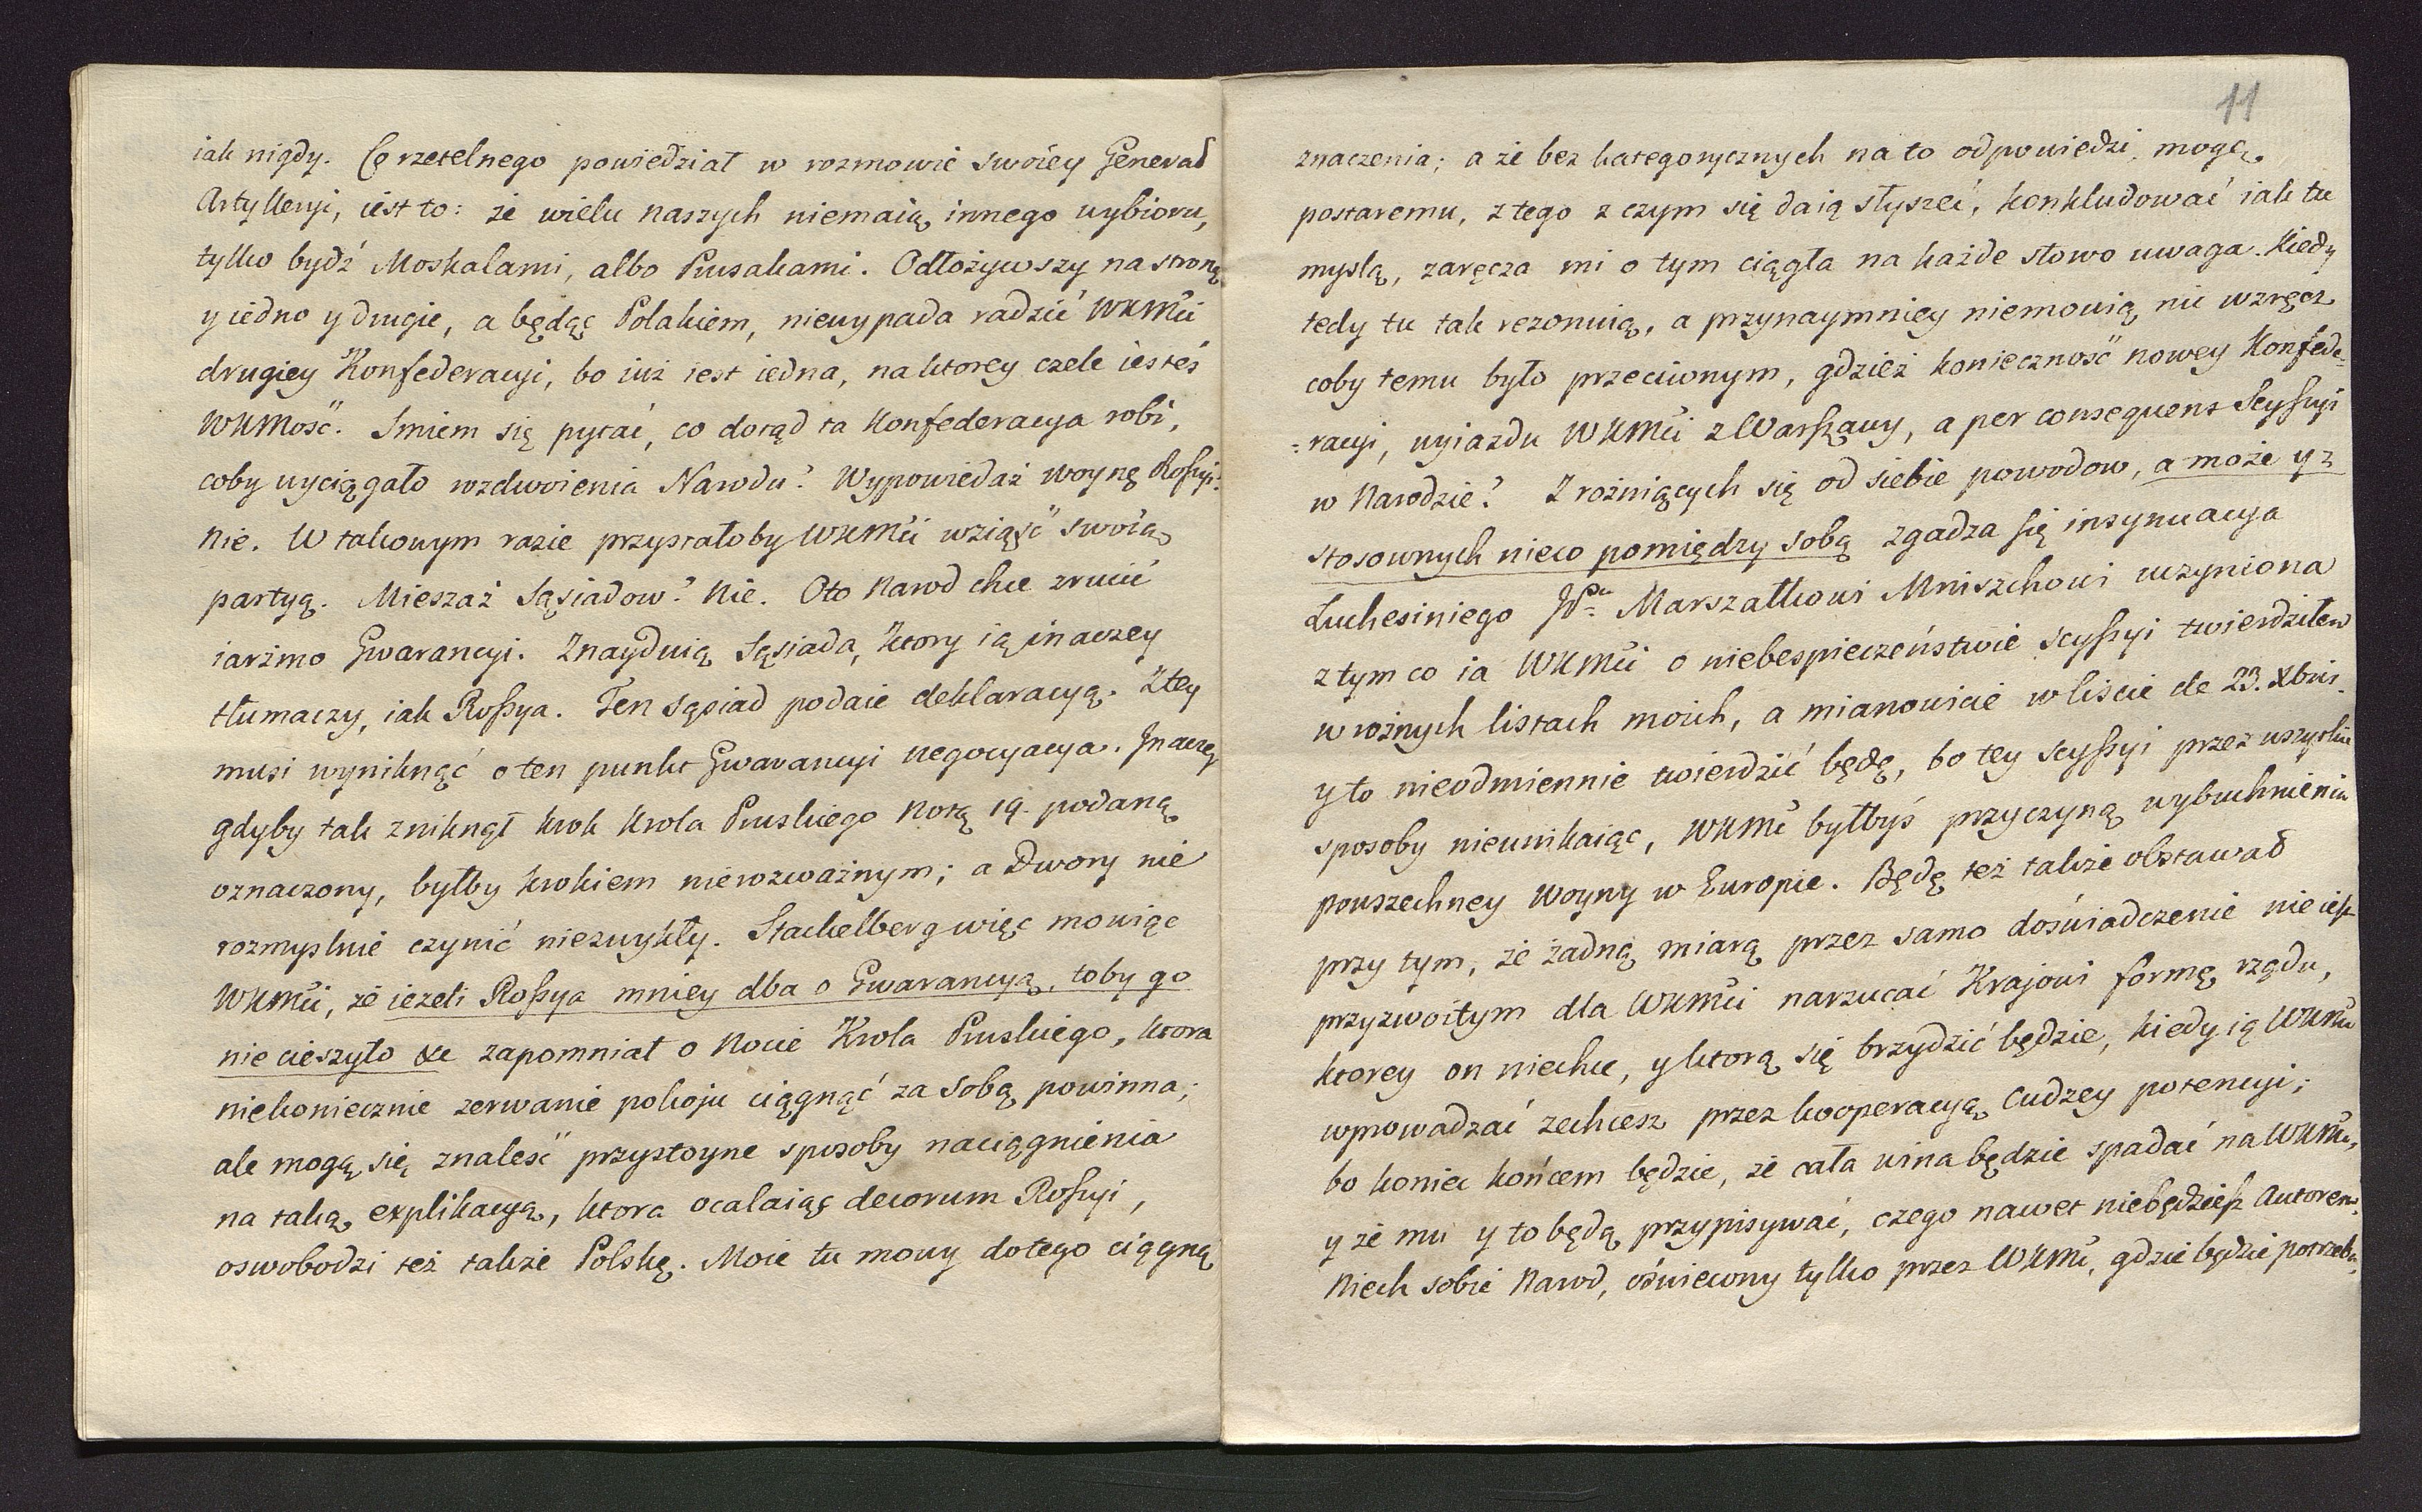 iak nigdy. Co rzetelnego powiedział w rozmowie swoiey Generał
Artylleryi, iest to: że wielu naszych niemaią innego wybioru,
tylko bydź Moskalami, albo Prusakami. Odłożywszy na stronę
y iedno y drugie, a będąc Polakiem, niewypada radzić WKMci
drugiey Konfederacyi, bo iuż iest iedna, na ktorey czele iesteś
WKMość. Smiem się pytać, co dotąd ta Konfederacya robi,
coby wyciągało rozdwoienia Narodu? Wypowiedaż woynę Rossyi?
Nie. W takowym razie przystałoby WKMci wziąść swoią
partyą. Mieszaż Sąsiadow? Nie. Oto Narod chce zrucić
iarzmo Gwarancyi. Znayduią Sąsiada, ktory ią inaczey
tłumaczy, iak Rossya. Ten sąsiad podaie deklaracyą. Z tey
musi wyniknąć o ten punkt Gwarancyi negocyacya. Inaczey
gdyby tak zniknął krok Krola Pruskiego Notą 19. podaną
oznaczony, byłby krokiem nierozważnym; a Dwory nie
rozmyslnie czynić niezwykły. Stackelberg więc mowiąc
WKMci, że ieżeli Rossya mniey dba o Gwarancyą, toby go
nie cieszyło &c zapomniał o Nocie Krola Pruskiego, ktora
niekoniecznie zerwanie pokoju ciągnąć za sobą powinna;
ale mogą się znaleść przystoyne sposoby naciągnienia
na taką explikacyą, ktora ocalaiąc decorum Rossyi,
oswobodzi też także Polskę. Moie tu mowy do tego ciągną
11
znaczenia; a że bez kategorycznych na to odpowiedzi, mogę
postaremu, z tego z czym się daią słyszeć, konkludować iak tu
myslą, zaręcza mi o tym ciągła na każde słowo uwaga. Kiedy
tedy tu tak rezonuią, a przynaymniey niemowią nic wzręcz
coby temu było przeciwnym, gdzież konieczność nowey Konfede-
-racyi, wyiazdu WKMci z Warszawy, a per consequens Scyssyi
w Narodzie? Z rożniących się od siebie powodow, a może y z
stosownych nieco pomiędzy sobą zgadza się insynuacya
Luchesiniego JPu Marszałkowi Mniszchowi uczyniona
z tym co ia WKMci o niebespieczeństwie scyssyi twierdziłem
w rożnych listach moich, a mianowicie w liście de 23. Xbris.
y to nieodmiennie twierdzić będę, bo tey scyssyi przez wszystkie
sposoby nieunikaiąc, WKMć byłbyś przyczyną wybuchnienia
powszechney Woyny w Europie. Będę też także obstawał
przy tym, że żadną miarą przez samo doświadczenie nie iest
przyzwoitym dla WKMci narzucać Krajowi formę rządu,
ktorey on niechce, y ktorą się brzydzić będzie, kiedy ią WKMć
wprowadzać zechcesz przez kooperacyą cudzey potencyi;
bo koniec końcem będzie, że cała wina będzie spadać na WKMci,
y że mu y to będą przypisywać, czego nawet niebędziesz Autorem.
Niech sobie Narod, oświecony tylko przez WKMć, gdzie będzie potrzeba,